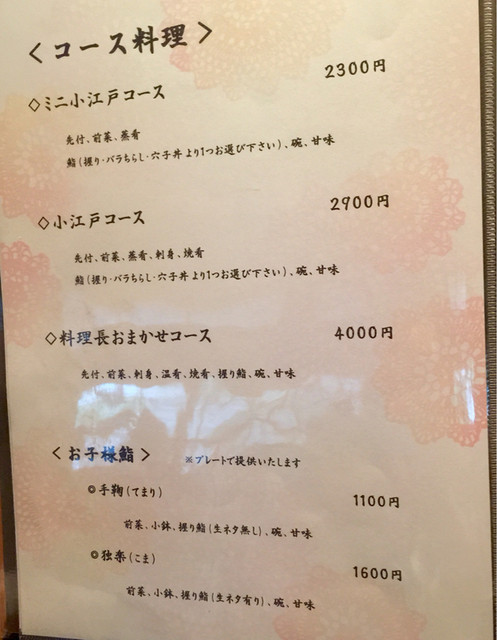 ＜コース料理＞
◇ミニ小江戸コース 2300円
先付、前菜、蒸肴
鮨(握り・バラちらし・穴子丼より1つお選び下さい)、碗、甘味
◇小江戸コース 2900円
先付、前菜、蒸肴、刺身、焼肴
鮨(握り・バラちらし・穴子丼より1つお選び下さい)、碗、甘味
◇料理長おまかせコース 4000円
先付、前菜、刺身、温肴、焼肴、握り鮨、碗、甘味
＜お子様鮨＞ ※プレートで提供いたします
◎手鞠(てまり) 1100円
前菜、小鉢、握り鮨(生ネタ無し)、碗、甘味
◎独楽(こま) 1600円
前菜、小鉢、握り鮨(生ネタ有り)、碗、甘味